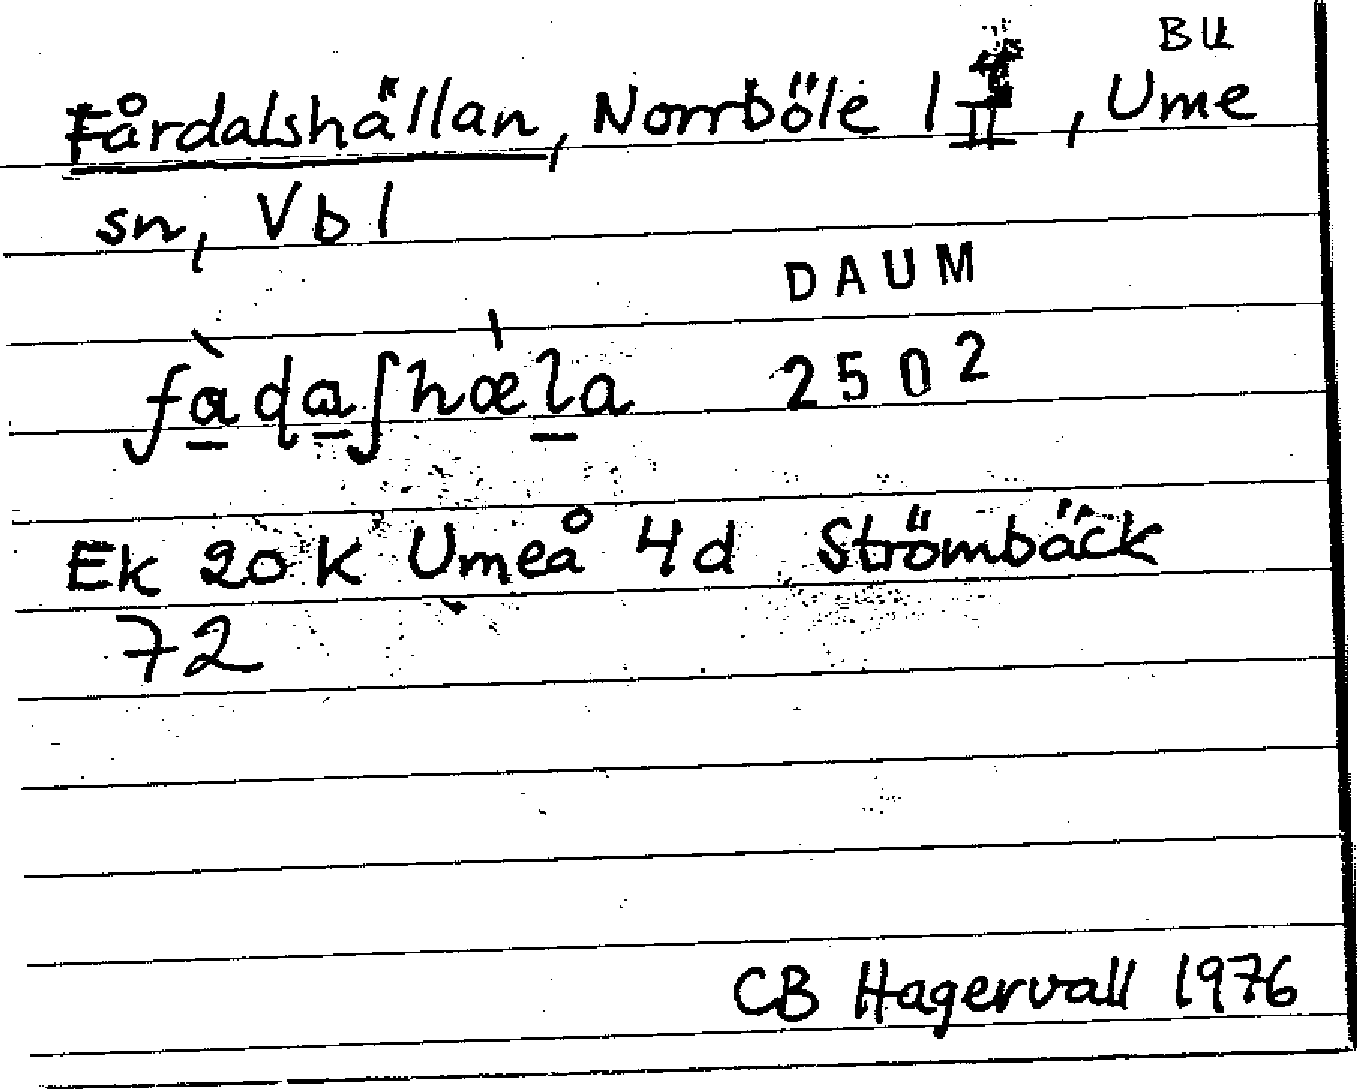 BU
Fårdalshällan, Norrböle 1 II, Ume
sn, Vbl
DAUM
2502
Ek 20 K Umeå 4d Strömbäck
72
CB Hagervall 1976